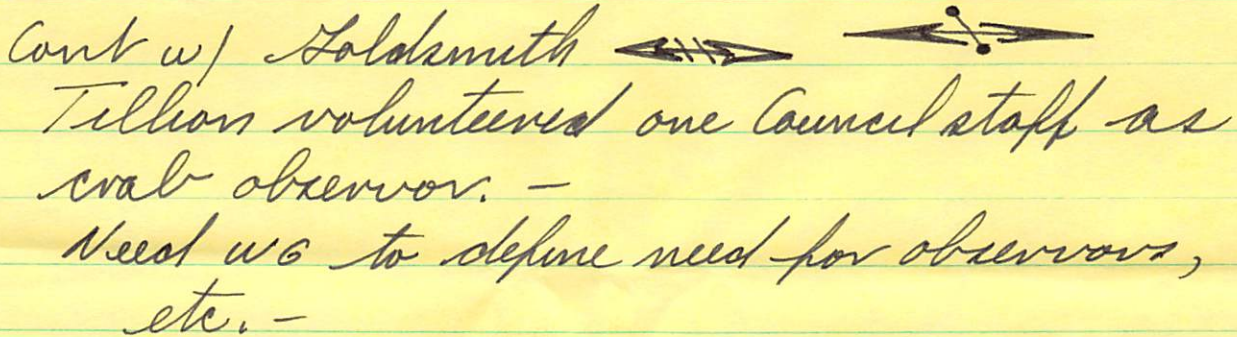 Cont w/ Goldsmith
Tillion volunteered one Council staff as
crab observor. -
Need WG to define need for observors,
etc. -